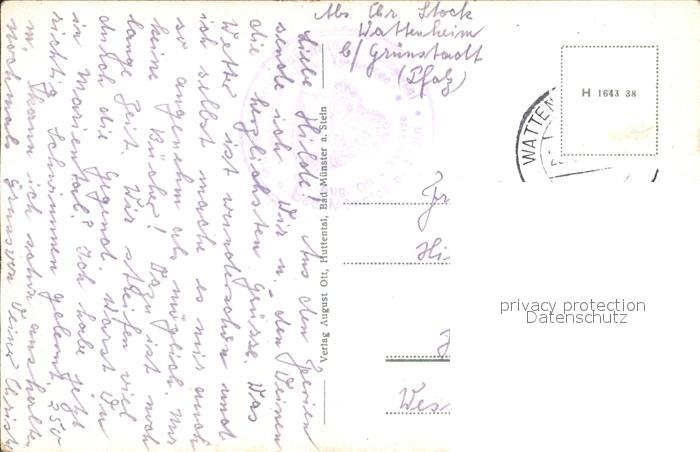 Abs. Chr. Stock
Wattenheim
b/ Grünstadt
(Pfalz)
H 1643 38
WATTEN
Liebe Hilde! Aus den Ferien
sende ich Dir u. den Deinen
die herzlichsten Grüsse. Das
Wetter ist wunderschön und
ich selbst mache es mir auch
so angenehm als möglich. Nur
keine Bücher! Dazu ist noch
lange Zeit. Wir streifen viel
durch die Gegend. Warst Du
in Mariental? Ich habe jetzt
richtig Schwimmen gelernt. 250
m. kann ich schon aushalten
nochmals Grüsse von Deiner Christl
Verlag August Ott, Huttental, Bad Münster a. Stein
Fr
Hi
Wes
privacy protection
Datenschutz